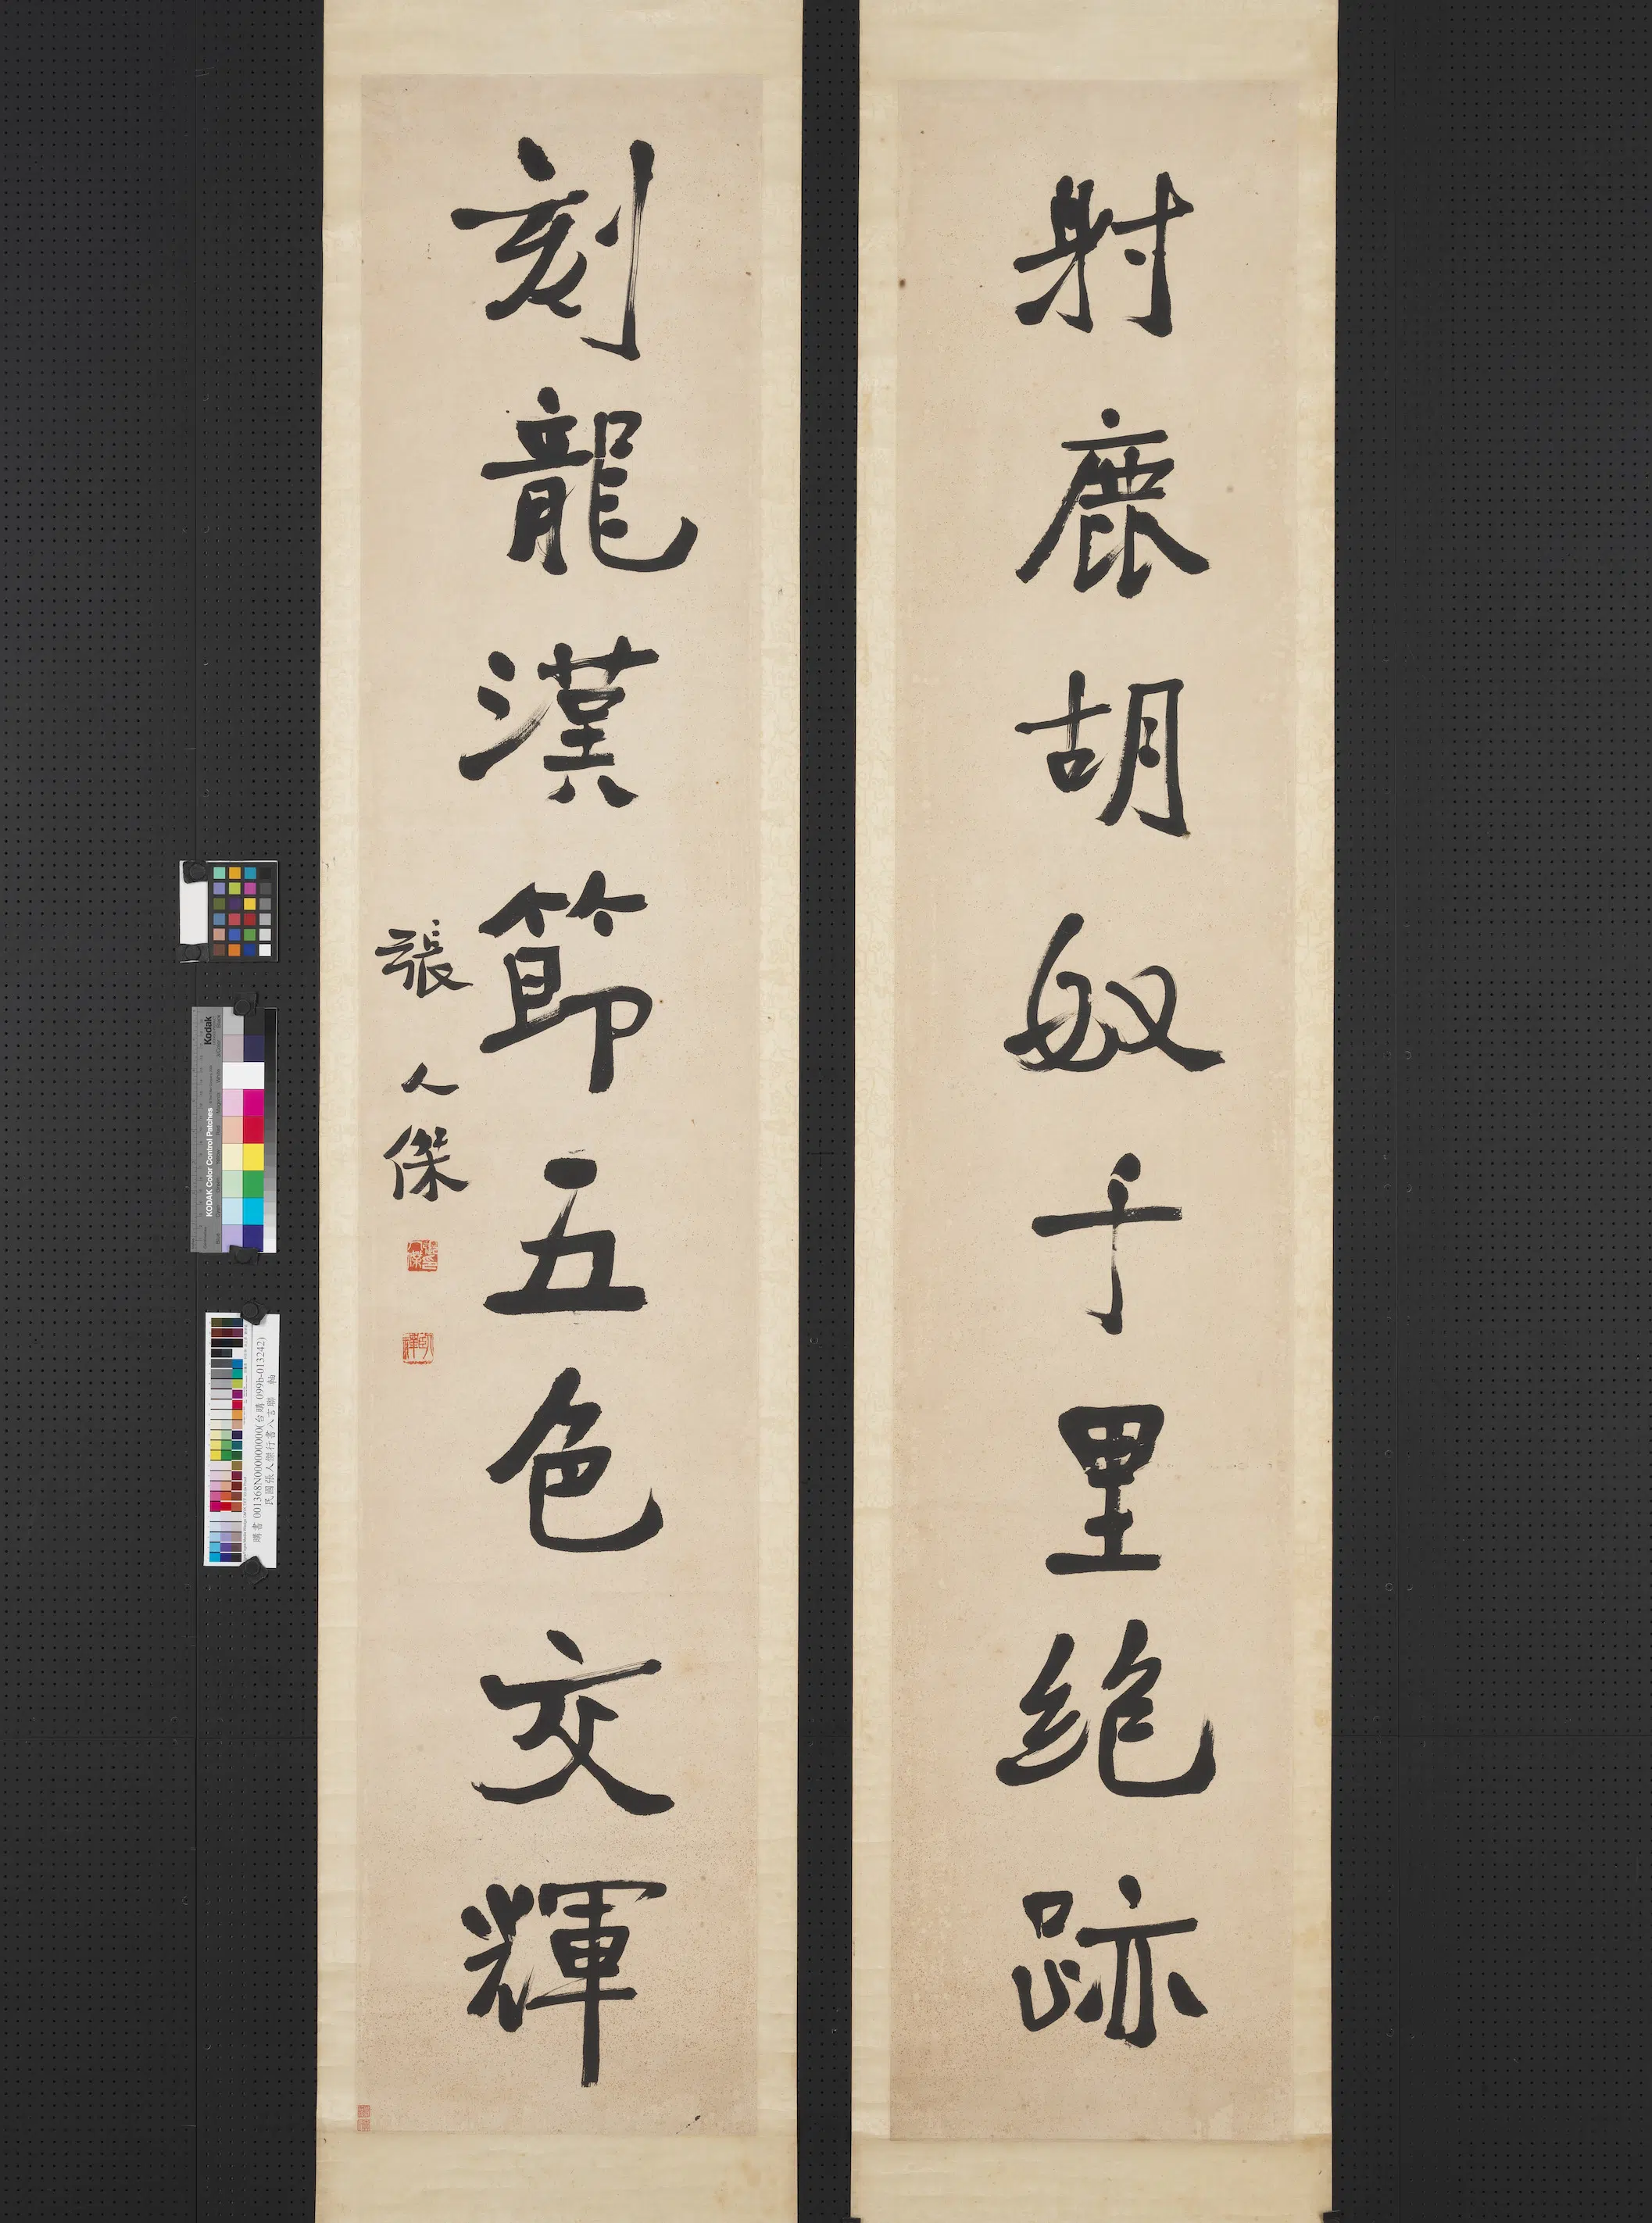 射鹿胡敏千里絕跡
刻龍漢節五色交輝
張人傑
張人傑印
Kodak
KODAK Color Control Patches
購書 001368N000000000(台購 099b-013242)
民國張人傑行書八言聯 軸